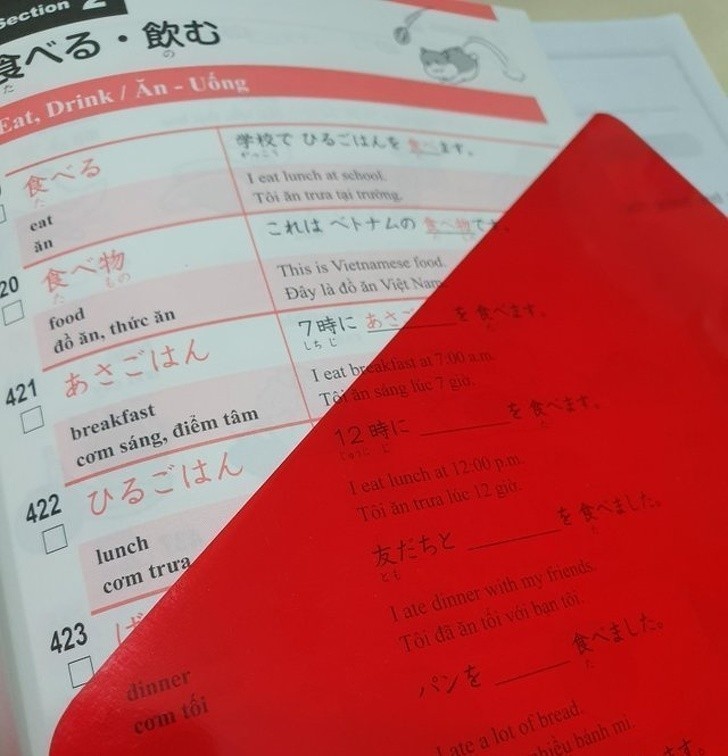 Section 2
食べる・飲む
た
の
Eat, Drink / Ăn - Uống
食べる
た
eat
ăn
学校で ひるごはんを 食べます。
がっこう
I eat lunch at school.
Tôi ăn trưa tại trường.
20
食べ物
た もの
food
đồ ăn, thức ăn
これは ベトナムの 食べ物です。
This is Vietnamese food.
Đây là đồ ăn Việt Nam
421
あさごはん
breakfast
cơm sáng, điểm tâm
7時に あさご を 食べます。
しちじ
I eat breakfast at 7:00 a.m.
Tôi ăn sáng lúc 7 giờ.
422
ひるごはん
lunch
cơm trưa
12時に を 食べます。
じゅうにじ
I eat lunch at 12:00 p.m.
Tôi ăn trưa lúc 12 giờ.
423
ば
dinner
cơm tối
友だちと を 食べました。
とも
I ate dinner with my friends.
Tôi đã ăn tối với bạn tôi.
パンを 食べました。
た
I ate a lot of bread.
nhiều bánh mì.
ます。